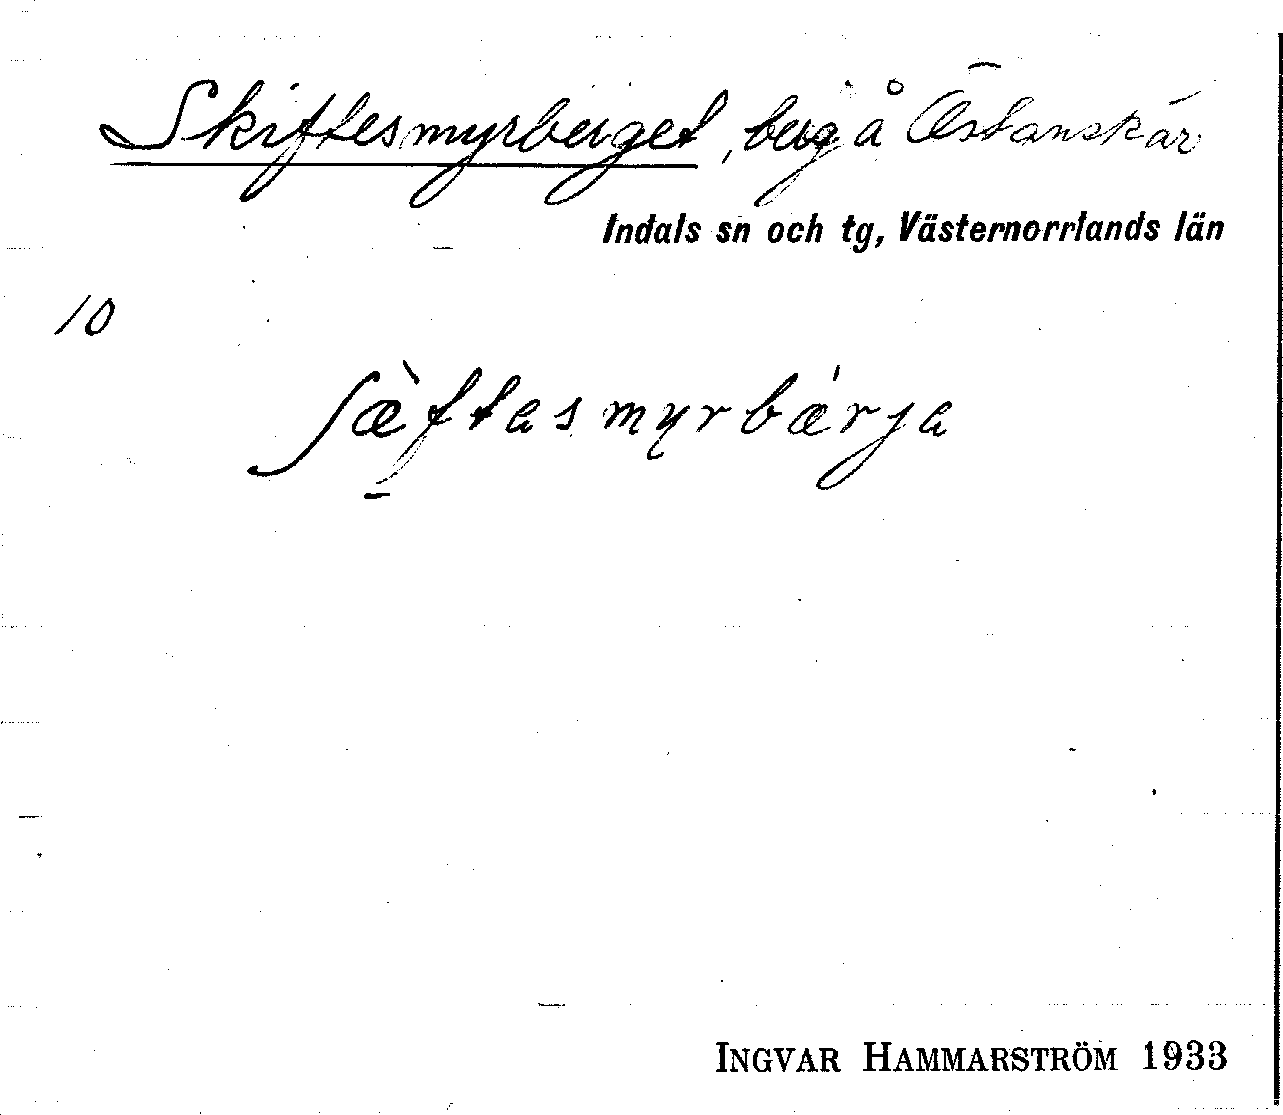 Skiftesmyrberget, berg å Östanskär
Indals sn och tg, Västernorrlands län
10
ʃæ̀ftasmyrbærja
INGVAR HAMMARSTRÖM 1933